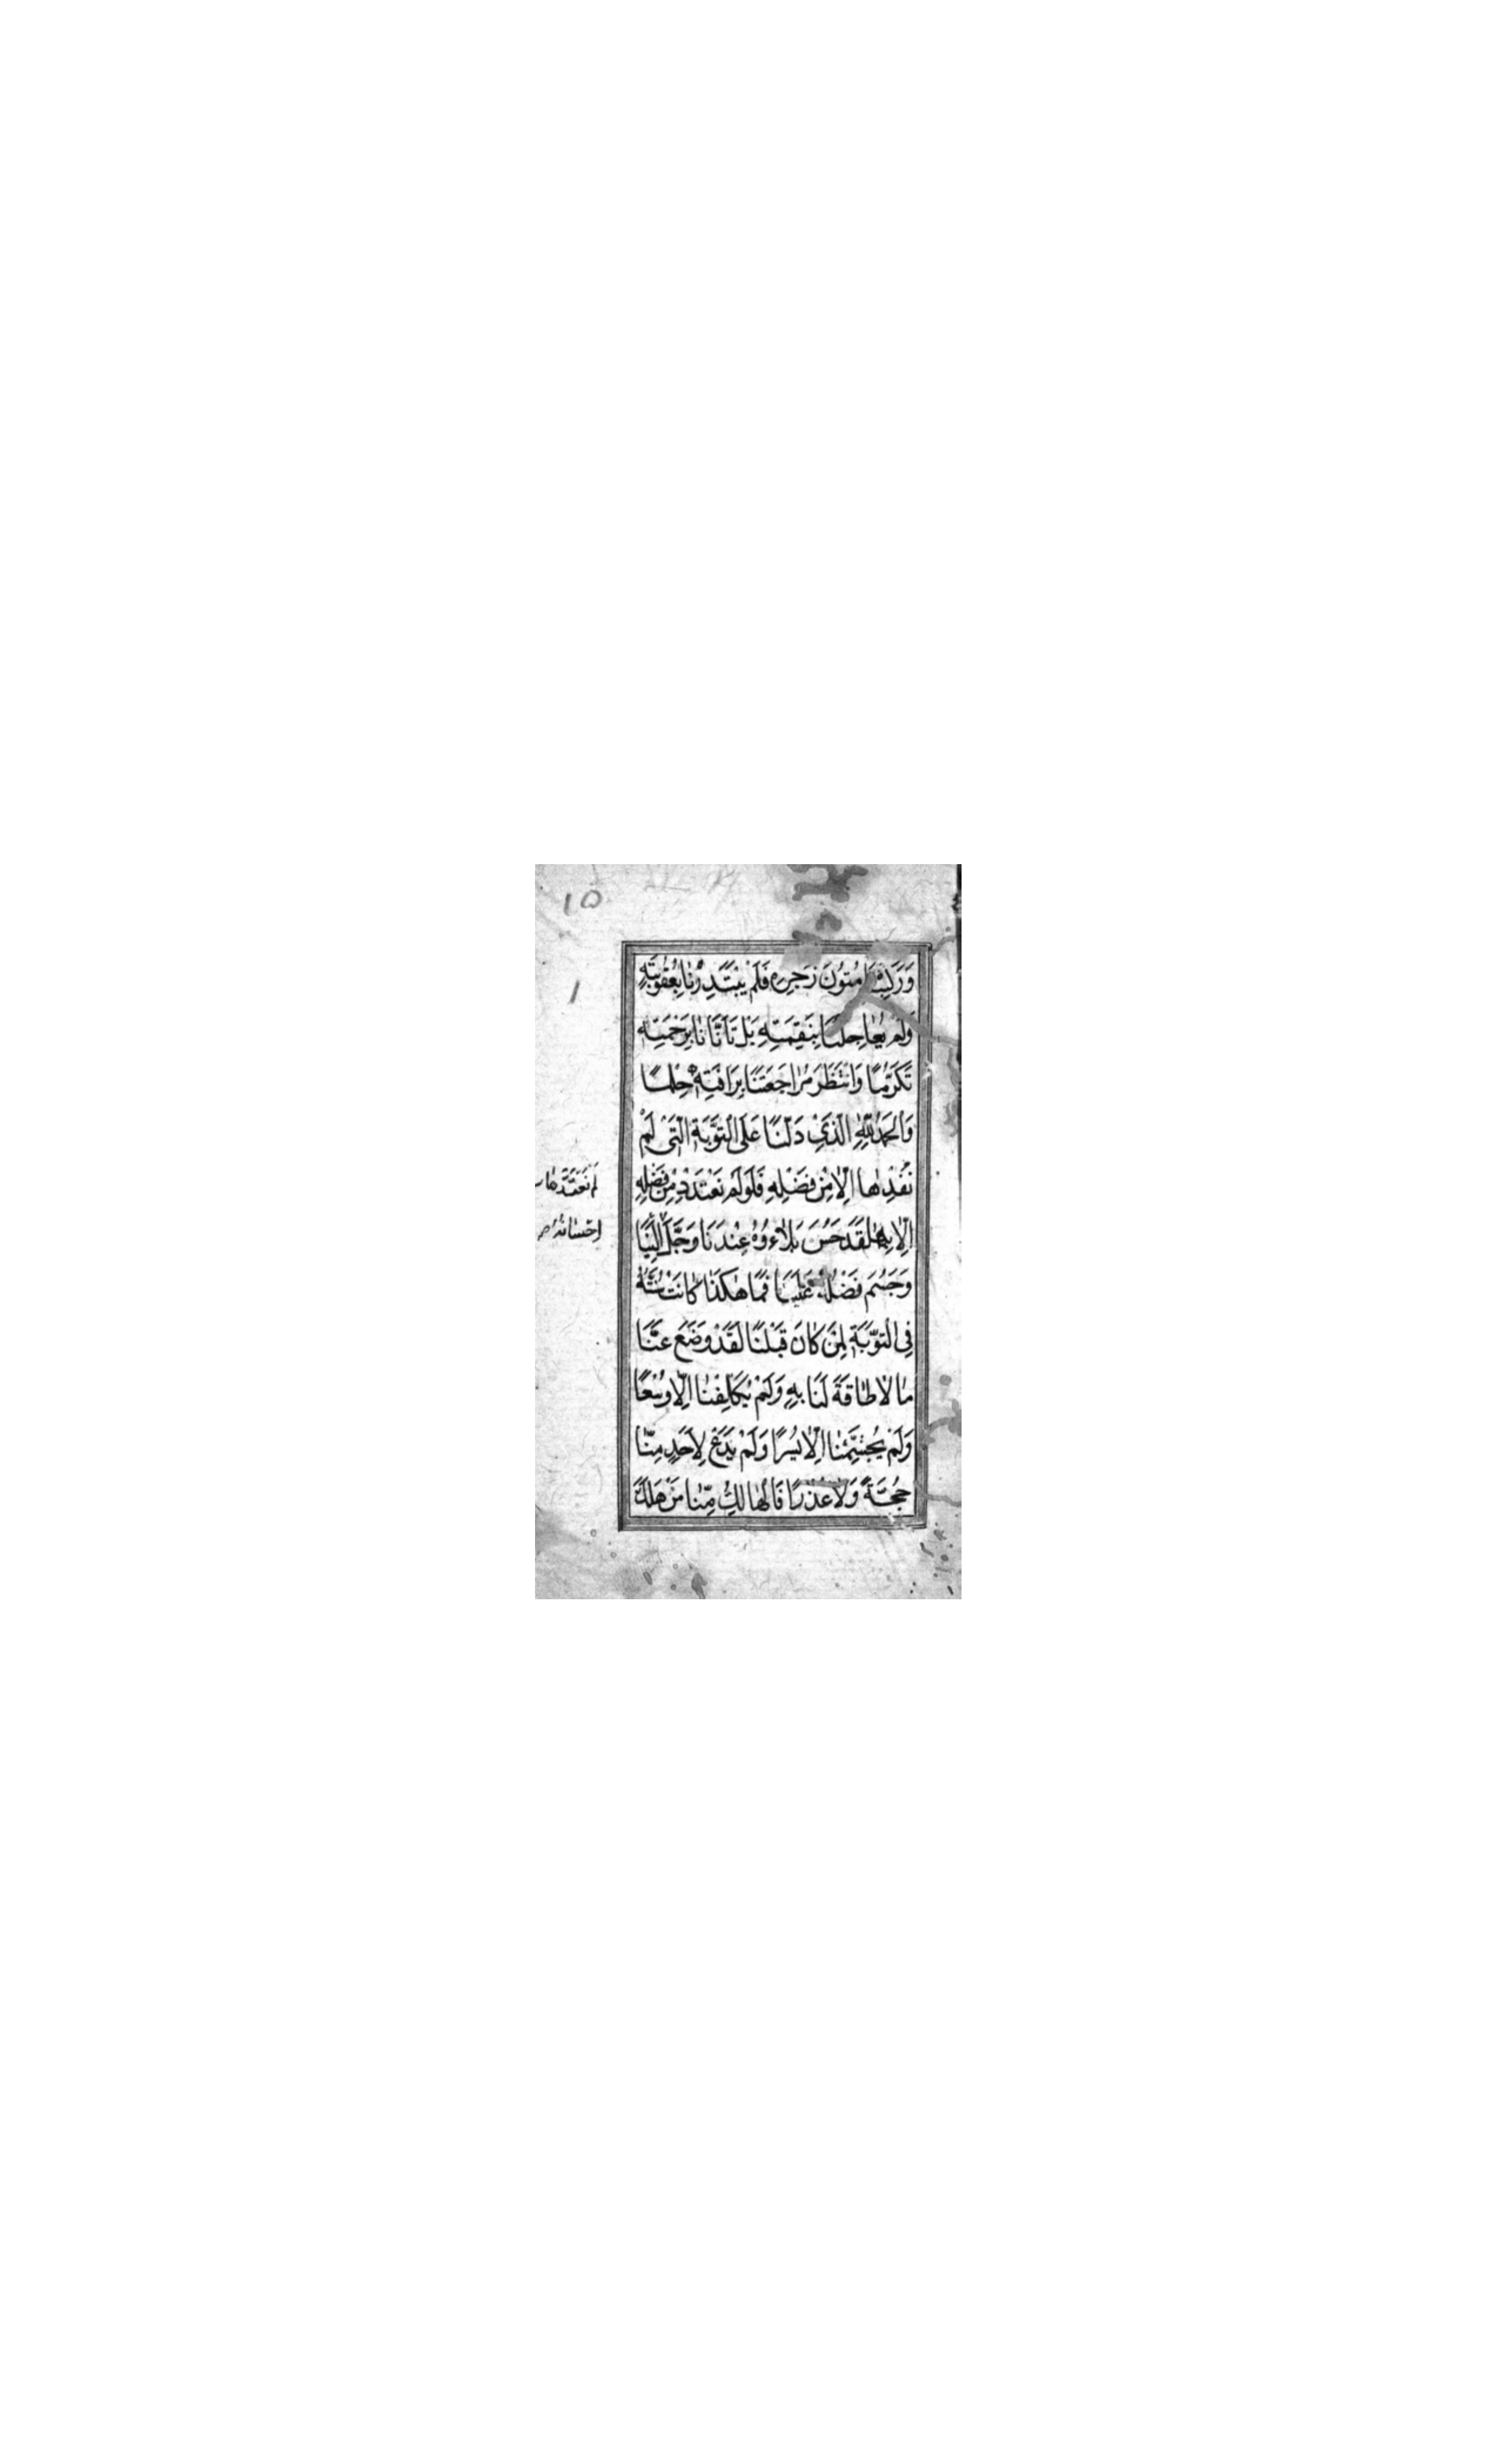 ١٥
١
وَرَكِبْنَا مُتُونَ زَجْرِهِ فَلَمْ يَبْتَدِرْنَا بِعُقُوبَتِهِ
وَلَمْ يُعَاجِلْنَا بِنَقِمَتِهِ بَلْ تَأَنَّانَا بِرَحْمَتِهِ
تَكَرُّمًا وَانْتَظَرَ مُرَاجَعَتَنَا بِرَافَتِهِ حِلْمًا
وَالْحَمْدُ لِلّٰهِ الَّذِي دَلَّنَا عَلَى التَّوْبَةِ الَّتِي لَمْ
نُفِدْهَا اِلَّا مِنْ فَضْلِهِ فَلَوْ لَمْ نَعْتَدِدْ مِنْ فَضْلِهِ
اِلَّا بِهَا لَقَدْ حَسُنَ بَلَاءُهُ عِنْدَنَا وَجَلَّ اِلَيْنَا
لَمْ نَعْتَدَّ
اِحْسَانُهُ
وَجَسُمَ فَضْلُهُ عَلَيْنَا فَمَا هٰكَذَا كَانَتْ سُنَّتُهُ
فِي التَّوْبَةِ لِمَنْ كَانَ قَبْلَنَا لَقَدْ وَضَعَ عَنَّا
مَا لَا طَاقَةَ لَنَا بِهِ وَلَمْ يُكَلِّفْنَا اِلَّا وُسْعًا
وَلَمْ يُجَشِّمْنَا اِلَّا يُسْرًا وَلَمْ يَدَعْ لِاَحَدٍ مِنَّا
حُجَّةً وَلَا عُذْرًا فَالْهَالِكُ مِنَّا مَنْ هَلَكَ